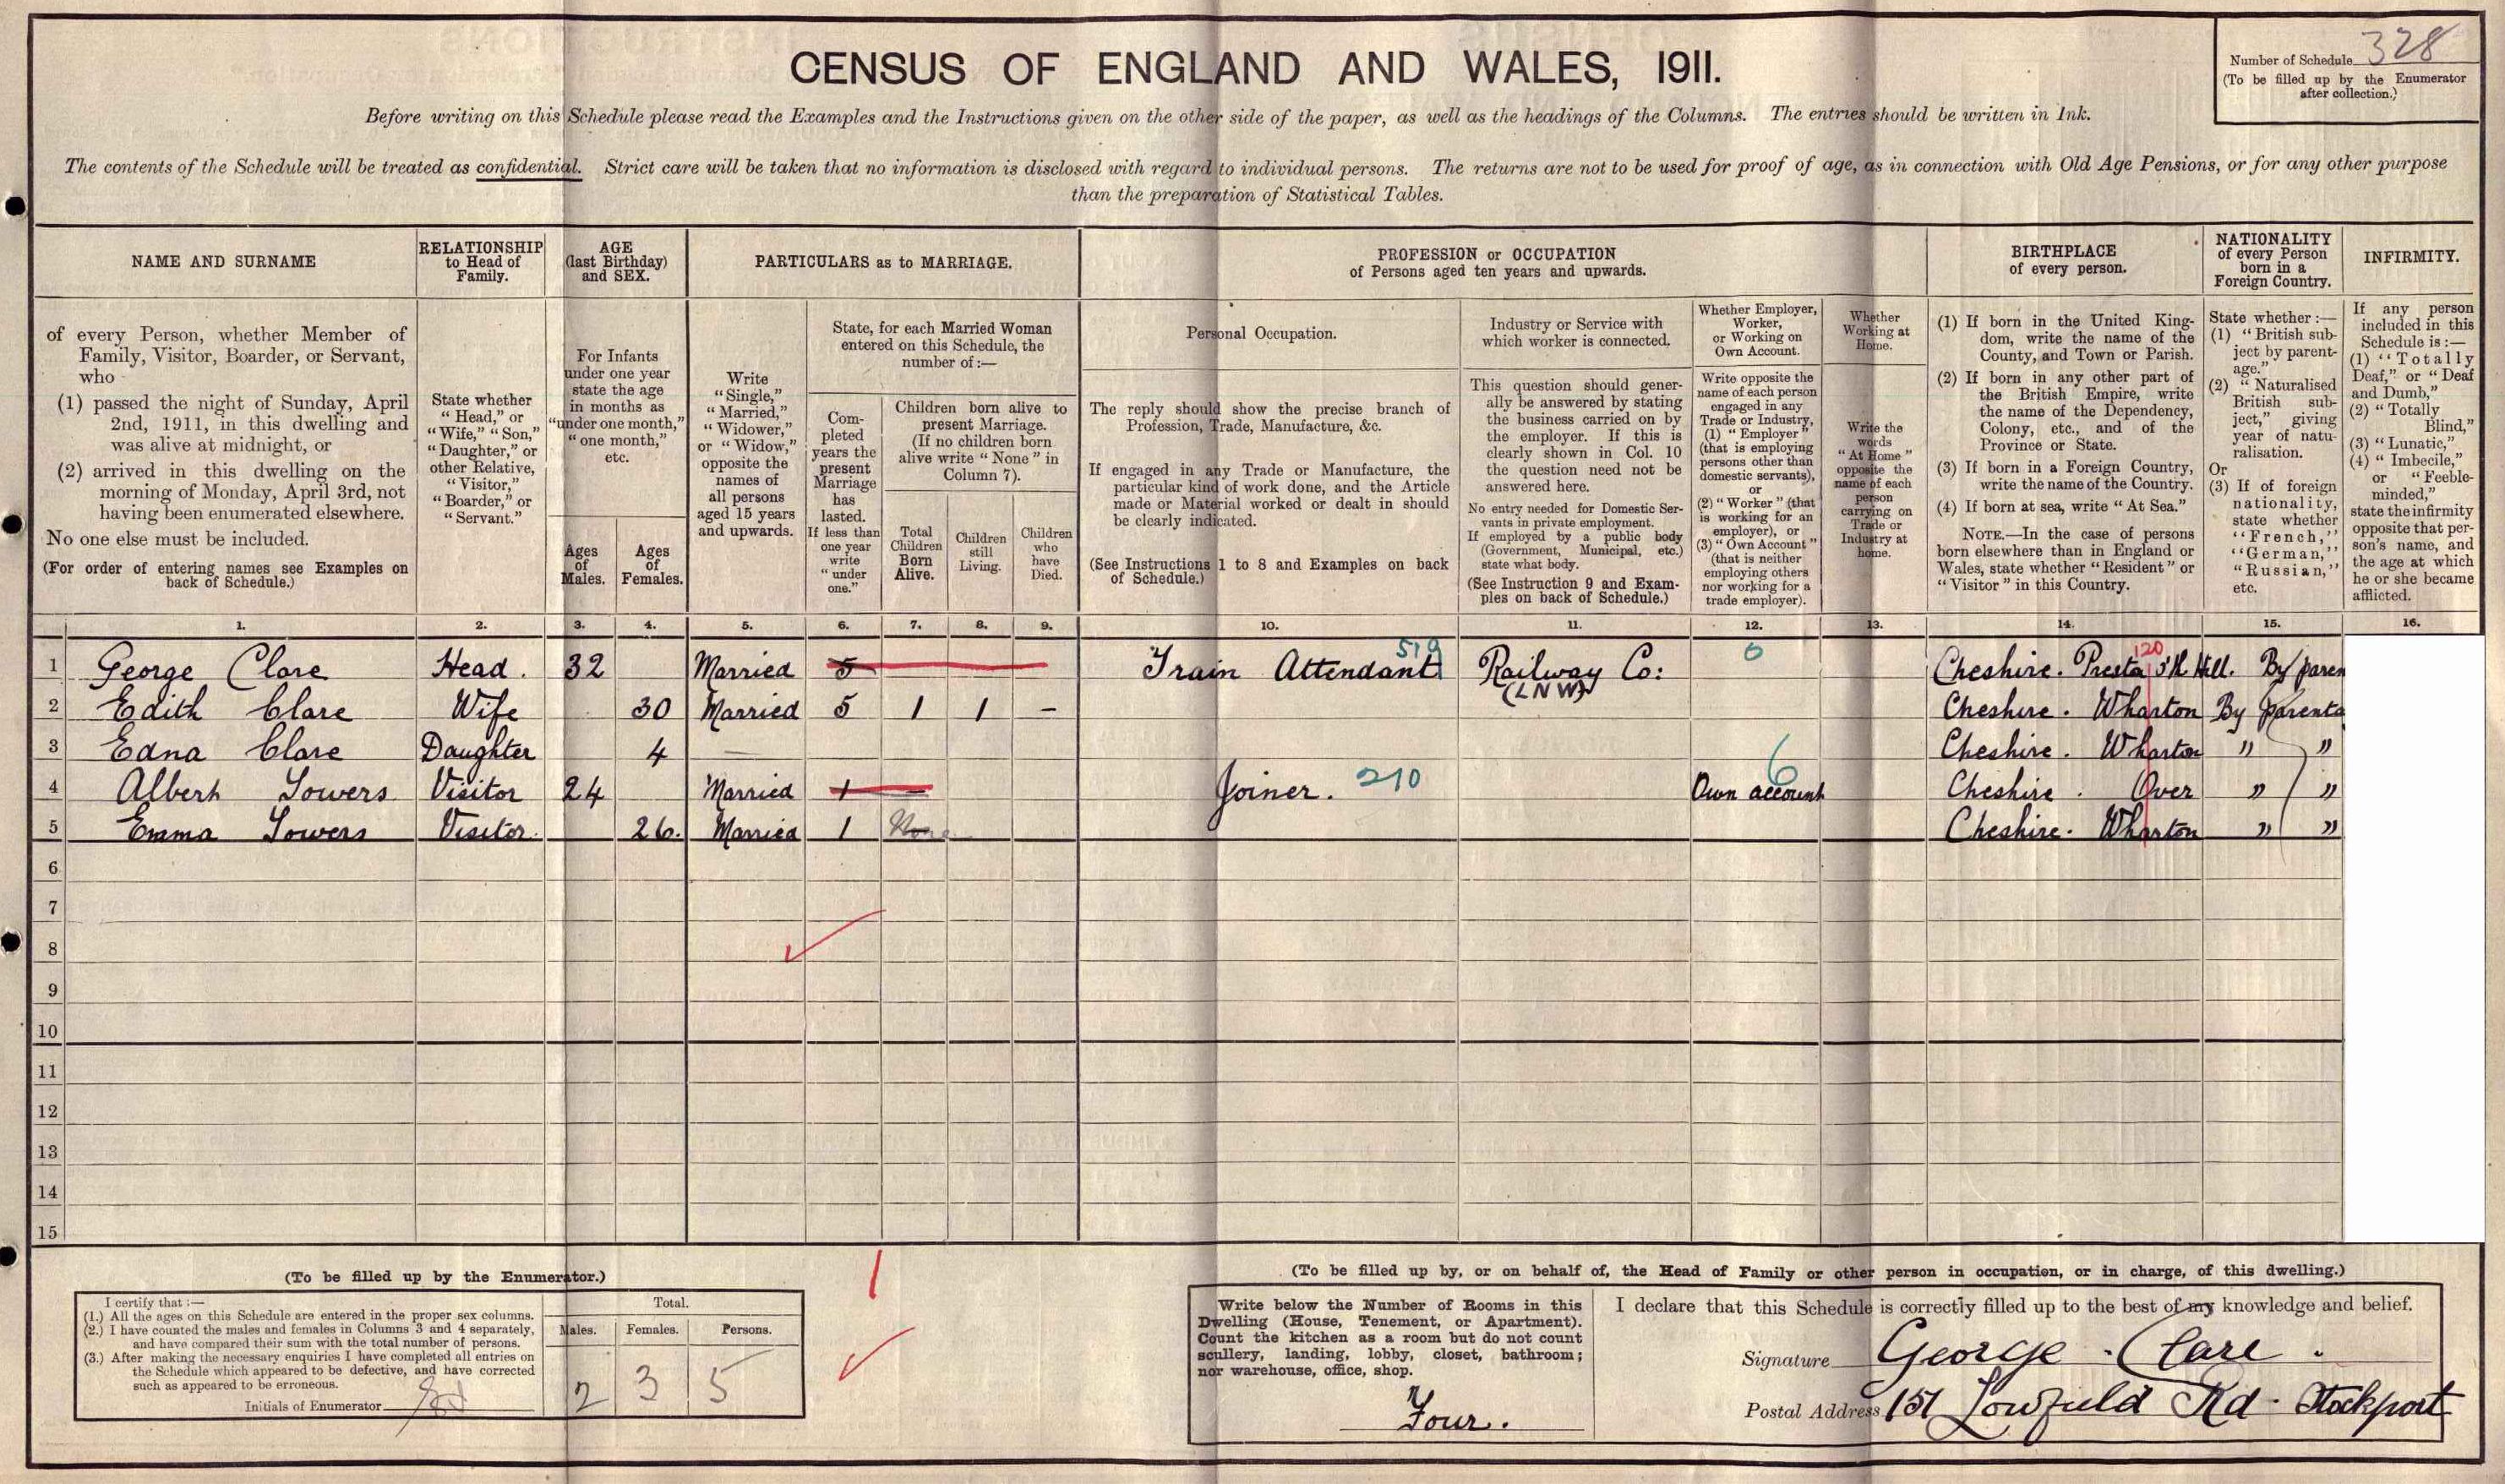 CENSUS OF ENGLAND AND WALES, 1911.
Number of Schedule 328
(To be filled up by the Enumerator
after collection.)
Before writing on this Schedule please read the Examples and the Instructions given on the other side of the paper, as well as the headings of the Columns. The entries should be written in Ink.
The contents of the Schedule will be treated as confidential. Strict care will be taken that no information is disclosed with regard to individual persons. The returns are not to be used for proof of age, as in connection with Old Age Pensions, or for any other purpose
than the preparation of Statistical Tables.
NAME AND SURNAME
of every Person, whether Member of
Family, Visitor, Boarder, or Servant,
who
(1) passed the night of Sunday, April
2nd, 1911, in this dwelling and
was alive at midnight, or
(2) arrived in this dwelling on the
morning of Monday, April 3rd, not
having been enumerated elsewhere.
No one else must be included.
(For order of entering names see Examples on
back of Schedule.)
RELATIONSHIP
to Head of
Family.
State whether
"Head," or
"Wife," "Son,"
"Daughter," or
other Relative,
"Visitor,"
"Boarder," or
"Servant."
AGE
(last Birthday)
and SEX.
For Infants
under one year
state the age
in months as
"under one month,"
"one month,"
etc.
Ages
of
Males.
Ages
of
Females.
PARTICULARS as to MARRIAGE.
Write
"Single,"
"Married,"
"Widower,"
or "Widow,"
opposite the
names of
all persons
aged 15 years
and upwards.
State, for each Married Woman
entered on this Schedule, the
number of:—
Com-
pleted
years the
present
Marriage
has
lasted.
If less than
one year
write
"under
one."
Children born alive to
present Marriage.
(If no children born
alive write "None" in
Column 7).
Total
Children
Born
Alive.
Children
still
Living.
Children
who
have
Died.
PROFESSION or OCCUPATION
of Persons aged ten years and upwards.
Personal Occupation.
The reply should show the precise branch of
Profession, Trade, Manufacture, &c.
If engaged in any Trade or Manufacture, the
particular kind of work done, and the Article
made or Material worked or dealt in should
be clearly indicated.
(See Instructions 1 to 8 and Examples on back
of Schedule.)
Industry or Service with
which worker is connected.
This question should gener-
ally be answered by stating
the business carried on by
the employer. If this is
clearly shown in Col. 10
the question need not be
answered here.
No entry needed for Domestic Ser-
vants in private employment.
If employed by a public body
(Government, Municipal, etc.)
state what body.
(See Instruction 9 and Exam-
ples on back of Schedule.)
Whether Employer,
Worker,
or Working on
Own Account.
Write opposite the
name of each person
engaged in any
Trade or Industry,
(1) "Employer"
(that is employing
persons other than
domestic servants),
or
(2) "Worker" (that
is working for an
employer), or
(3) "Own Account"
(that is neither
employing others
nor working for a
trade employer).
Whether
Working at
Home.
Write the
words
"At Home"
opposite the
name of each
person
carrying on
Trade or
Industry at
home.
BIRTHPLACE
of every person.
(1) If born in the United King-
dom, write the name of the
County, and Town or Parish.
(2) If born in any other part of
the British Empire, write
the name of the Dependency,
Colony, etc., and of the
Province or State.
(3) If born in a Foreign Country,
write the name of the Country.
(4) If born at sea, write "At Sea."
NOTE.—In the case of persons
born elsewhere than in England or
Wales, state whether "Resident" or
"Visitor" in this Country.
NATIONALITY
of every Person
born in a
Foreign Country.
State whether:—
(1) "British sub-
ject by parent-
age."
(2) "Naturalised
British sub-
ject," giving
year of natu-
ralisation.
Or
(3) If of foreign
nationality,
state whether
"French,"
"German,"
"Russian,"
etc.
INFIRMITY.
If any person
included in this
Schedule is:—
(1) "Totally
Deaf," or "Deaf
and Dumb,"
(2) "Totally
Blind,"
(3) "Lunatic,"
(4) "Imbecile,"
or "Feeble-
minded,"
state the infirmity
opposite that per-
son's name, and
the age at which
he or she became
afflicted.
1. 2. 3. 4. 5. 6. 7. 8. 9. 10. 11. 12. 13. 14. 15. 16.
1 George Clare Head. 32 Married 5 Train Attendant 519 Railway Co: (LNW) 0 Cheshire. Hill. 120 By paren
2 Edith Clare Wife 30 Married 5 1 1 - Cheshire. Wharton By parenta
3 Edna Clare Daughter 4 — Cheshire. Wharton " "
4 Albert Sowers Visitor 24 Married 1 — Joiner. 210 Own account 6 Cheshire. Over " "
5 Emma Sowers Visitor. 26. Married 1 None Cheshire. Wharton " "
6
7
8
9
10
11
12
13
14
15
(To be filled up by the Enumerator.)
I certify that:—
(1.) All the ages on this Schedule are entered in the proper sex columns.
(2.) I have counted the males and females in Columns 3 and 4 separately,
and have compared their sum with the total number of persons.
(3.) After making the necessary enquiries I have completed all entries on
the Schedule which appeared to be defective, and have corrected
such as appeared to be erroneous.
Initials of Enumerator
Total.
Males. Females. Persons.
2 3 5
(To be filled up by, or on behalf of, the Head of Family or other person in occupation, or in charge, of this dwelling.)
Write below the Number of Rooms in this
Dwelling (House, Tenement, or Apartment).
Count the kitchen as a room but do not count
scullery, landing, lobby, closet, bathroom;
nor warehouse, office, shop.
Four.
I declare that this Schedule is correctly filled up to the best of my knowledge and belief.
Signature George Clare.
Postal Address 151 Lowfield Rd. Stockport